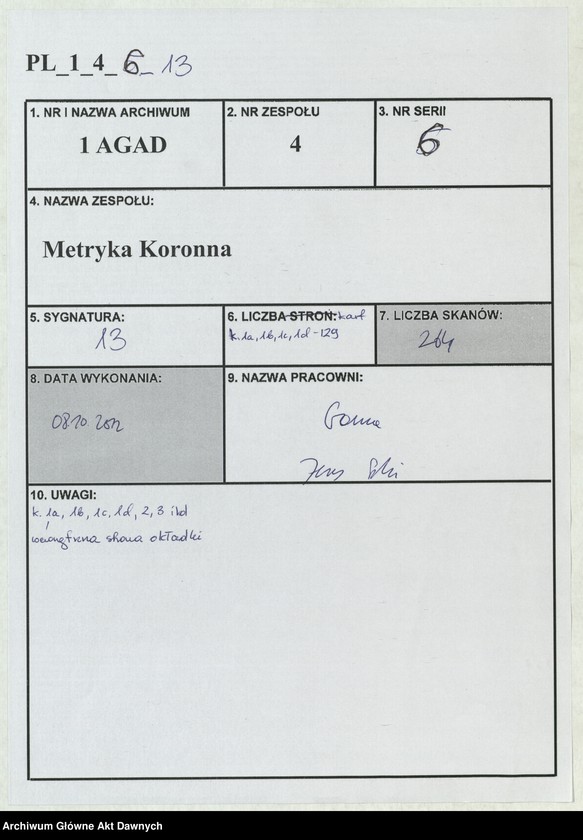 PL_1_4_6_13
1. NR I NAZWA ARCHIWUM
1 AGAD
2. NR ZESPOŁU
4
3. NR SERII
6
4. NAZWA ZESPOŁU:
Metryka Koronna
5. SYGNATURA:
13
6. LICZBA STRON: kart
k. 1a, 1b, 1c, 1d - 129
7. LICZBA SKANÓW:
264
8. DATA WYKONANIA:
08.10.2012
9. NAZWA PRACOWNI:
10. UWAGI:
k. 1a, 1b, 1c, 1d, 2, 3 itd
wewnętrzna strona okładki
Archiwum Główne Akt Dawnych